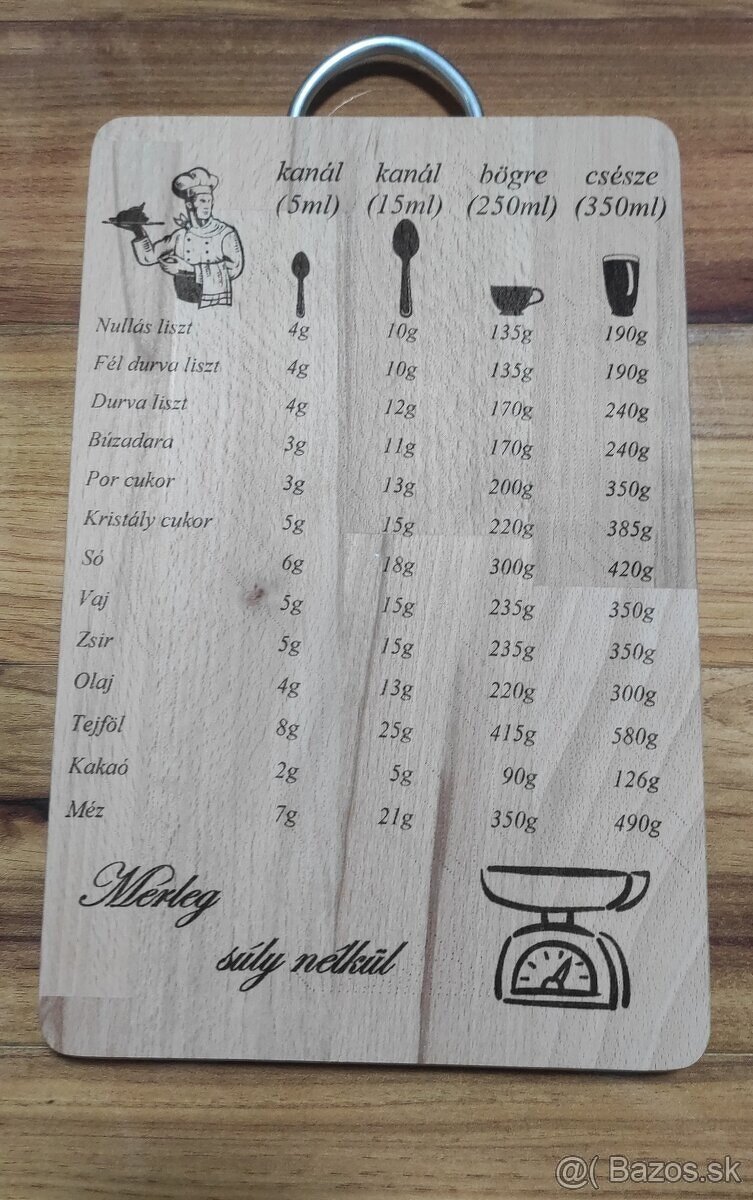 kanál kanál bögre csésze
(5ml) (15ml) (250ml) (350ml)
Nullás liszt 4g 10g 135g 190g
Fél durva liszt 4g 10g 135g 190g
Durva liszt 4g 12g 170g 240g
Búzadara 3g 11g 170g 240g
Por cukor 3g 13g 200g 350g
Kristály cukor 5g 15g 220g 385g
Só 6g 18g 300g 420g
Vaj 5g 15g 235g 350g
Zsir 5g 15g 235g 350g
Olaj 4g 13g 220g 300g
Tejföl 8g 25g 415g 580g
Kakaó 2g 5g 90g 126g
Méz 7g 21g 350g 490g
Mérleg
súly nélkül
@( Bazos.sk